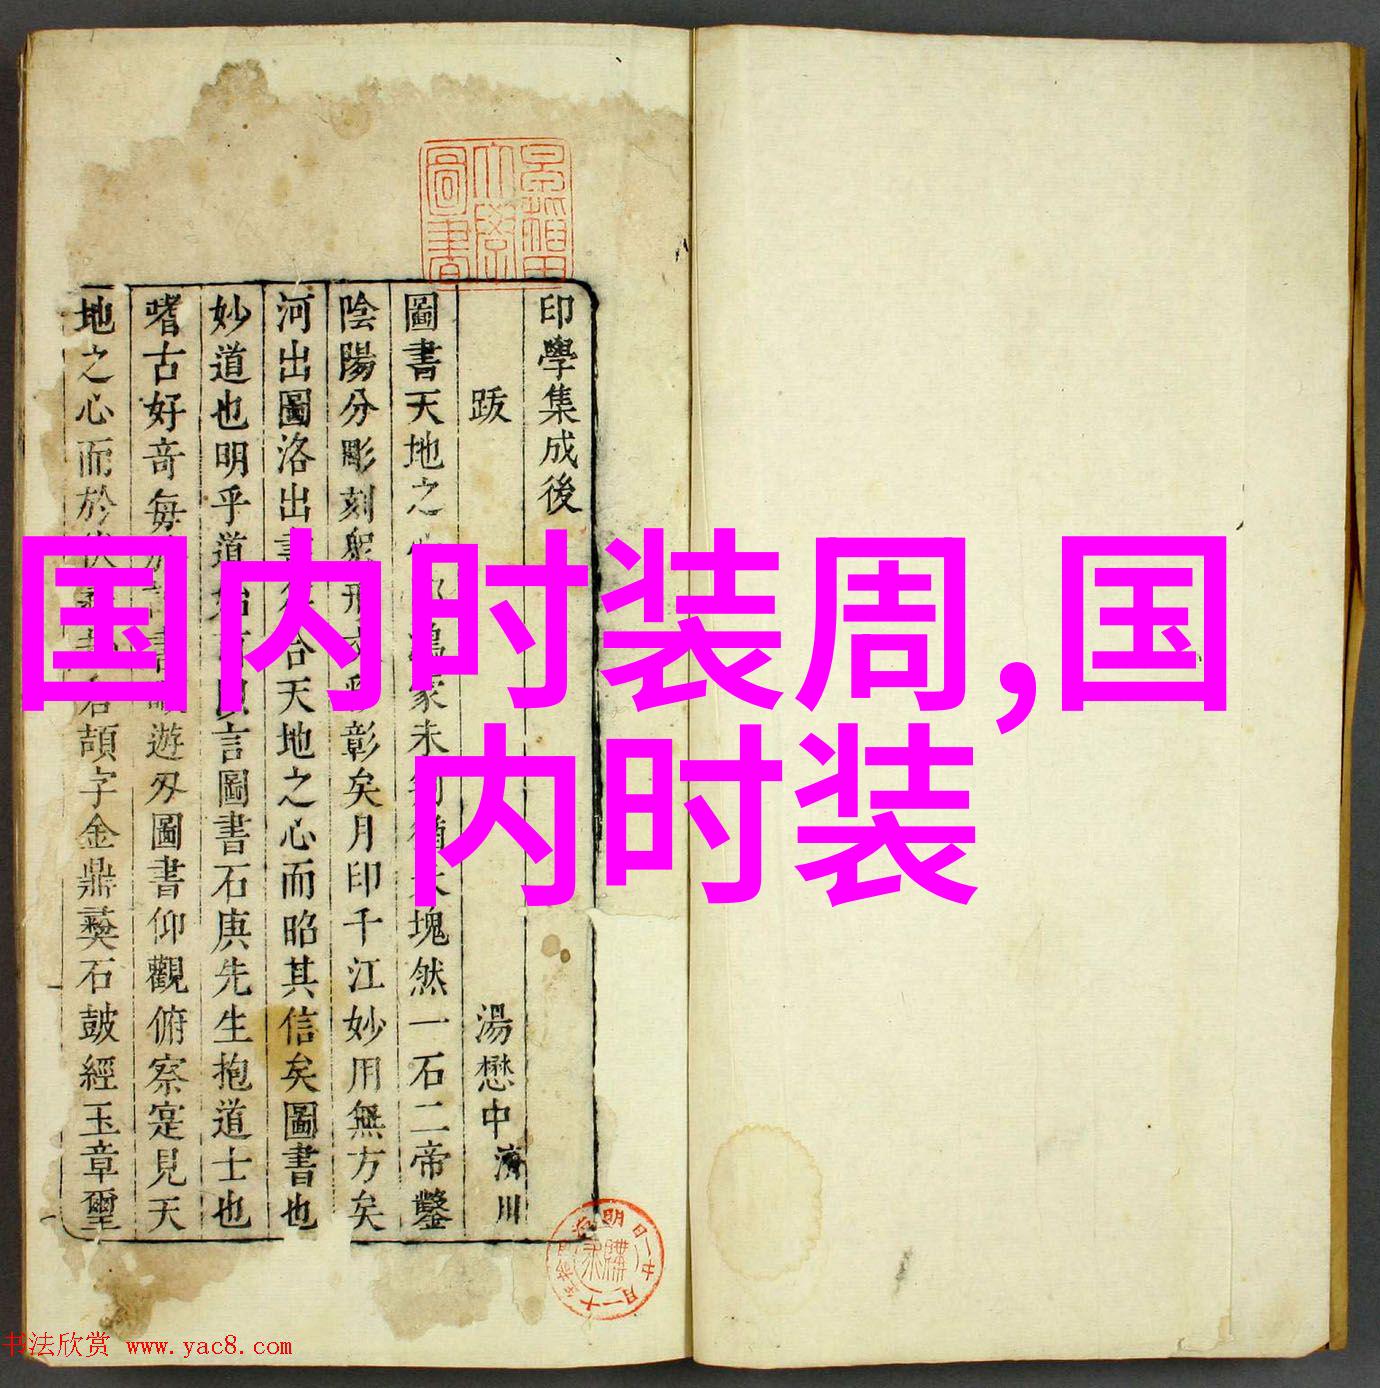 国内时装周,国
内时装
早稻田
大學
圖書
印學集成後
跋 湯懋中 濟川
圖書天地之未猶大塊然一石二帝鑿
陰陽分彫刻衆形彰矣月印千江妙用無方矣
河出圖洛出書合天地之心而昭其信矣圖書也
妙道也明乎道言圖書石庚先生抱道士也
嗜古好奇每遊刃圖書仰觀俯察寔見天
地之心而於頡字金鼎彜石鼓經玉章璽
明治十一月廿一日
購求
书法欣赏 www.yac8.com